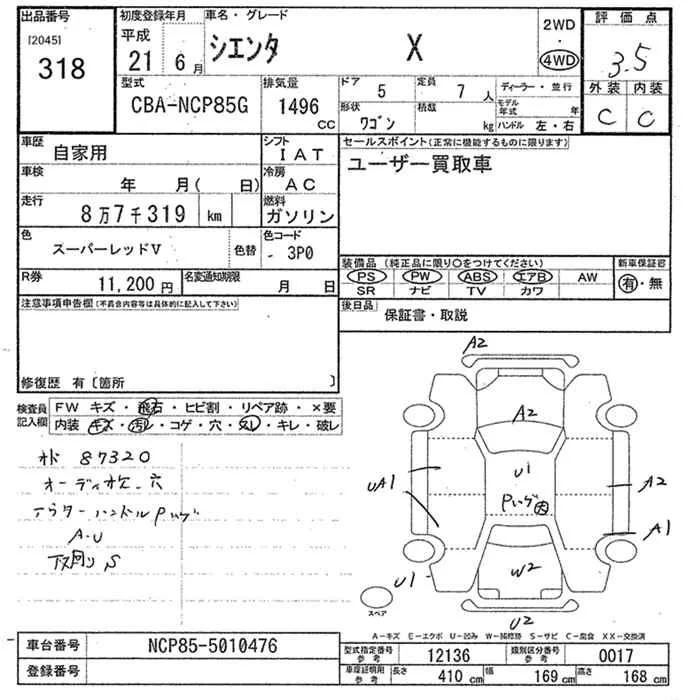 出品番号
[2045]
318
初度登録年月
平成
21 6月
車名・グレード
シエンタ X
2WD
・
4WD
評価点
3.5
外装 内装
C C
型式
CBA-NCP85G
排気量
1496
CC
ドア
5
定員
7 人
形状
ワゴン
積載
kg
ディーラー・並行
モデル年式 年
ハンドル 左・右
車歴
自家用
シフト
IAT
車検
年 月( 日)
冷房
AC
走行
8万7千319 km
燃料
ガソリン
色
スーパーレッドV
色替
色コード
- 3P0
R券
11,200円
名変通知期限
月 日
セールスポイント(正常に機能するものに限ります)
ユーザー買取車
装備品(純正品に限り○をつけてください)
PS PW ABS エアB AW
SR ナビ TV カワ
新車保証書
有・無
後日品
保証書・取説
注意事項申告欄(不具合内容等は具体的に記入して下さい)
修復歴 有〔箇所 〕
検査員記入欄
FW キズ・飛石・ヒビ割・リペア跡・×要
内装 キズ・汚レ・コゲ・穴・スレ・キレ・破レ
87320
A・U
S
A2
A2
U1
UA1
A2
A1
U1
W2
U2
スペア
A-キズ E-エクボ U-凹み W-補修跡 S-サビ C-腐食 XX-交換済
車台番号
NCP85-5010476
登録番号
型式指定番号
参考
12136
類別区分番号
参考
0017
車庫証明用
参考
長さ
410 cm
幅
169 cm
高さ
168 cm